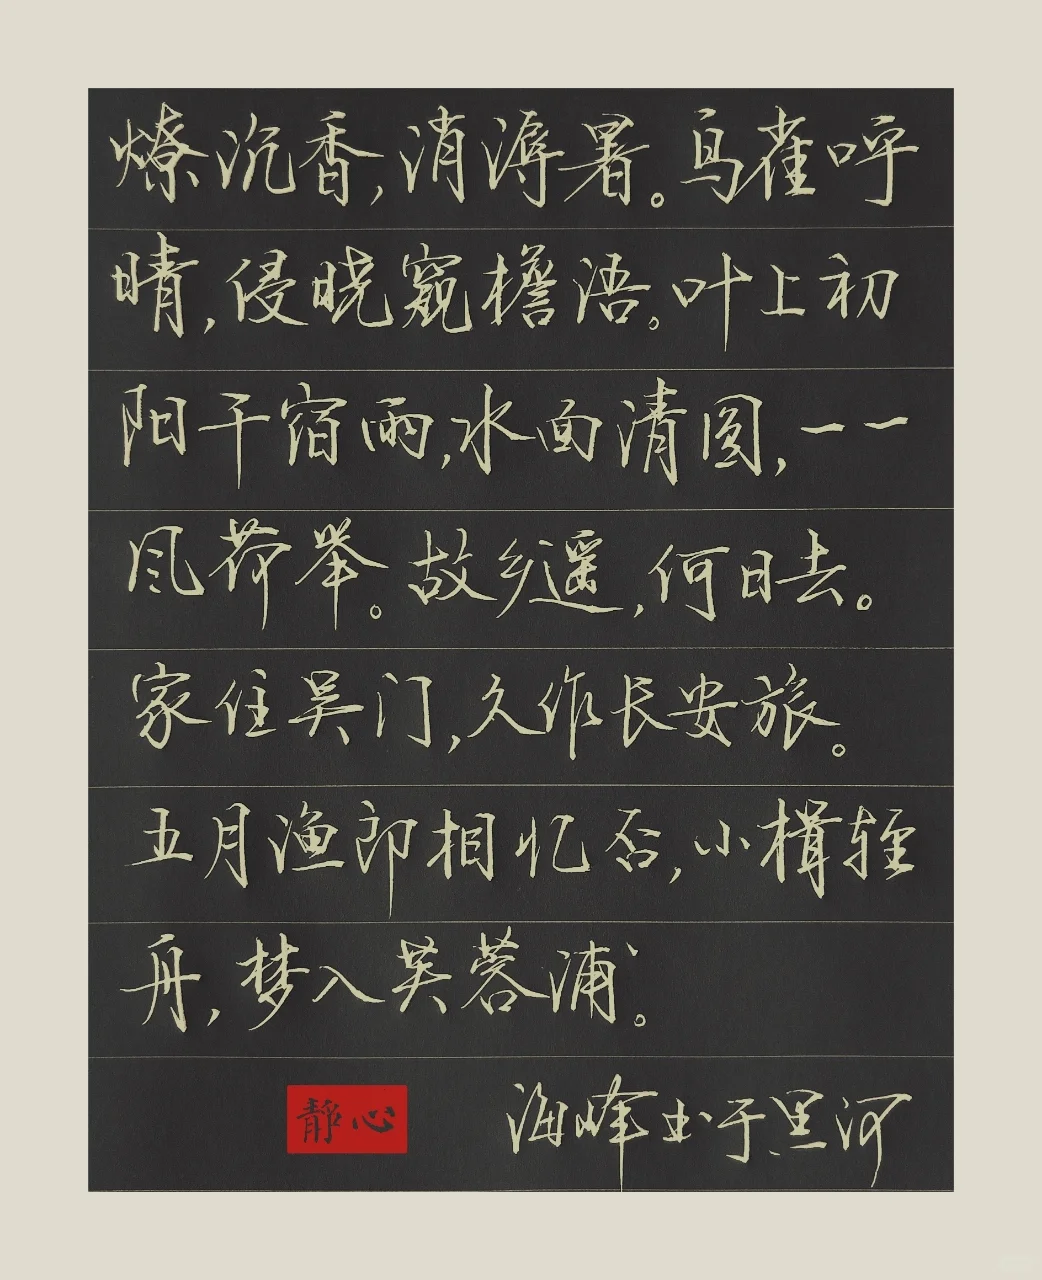 燎沉香,消溽暑。鸟雀呼
晴,侵晓窥檐语。叶上初
阳干宿雨,水面清圆,一一
风荷举。故乡遥,何日去。
家住吴门,久作长安旅。
五月渔郎相忆否,小楫轻
舟,梦入芙蓉浦。
静心
海峰书于黑河